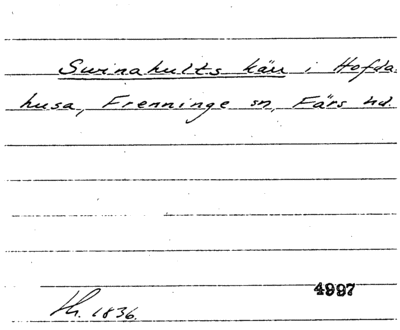 Swinahults kärr i Hofda-
husa, Frenninge sn, Färs hd.
4997
Kh. 1836.